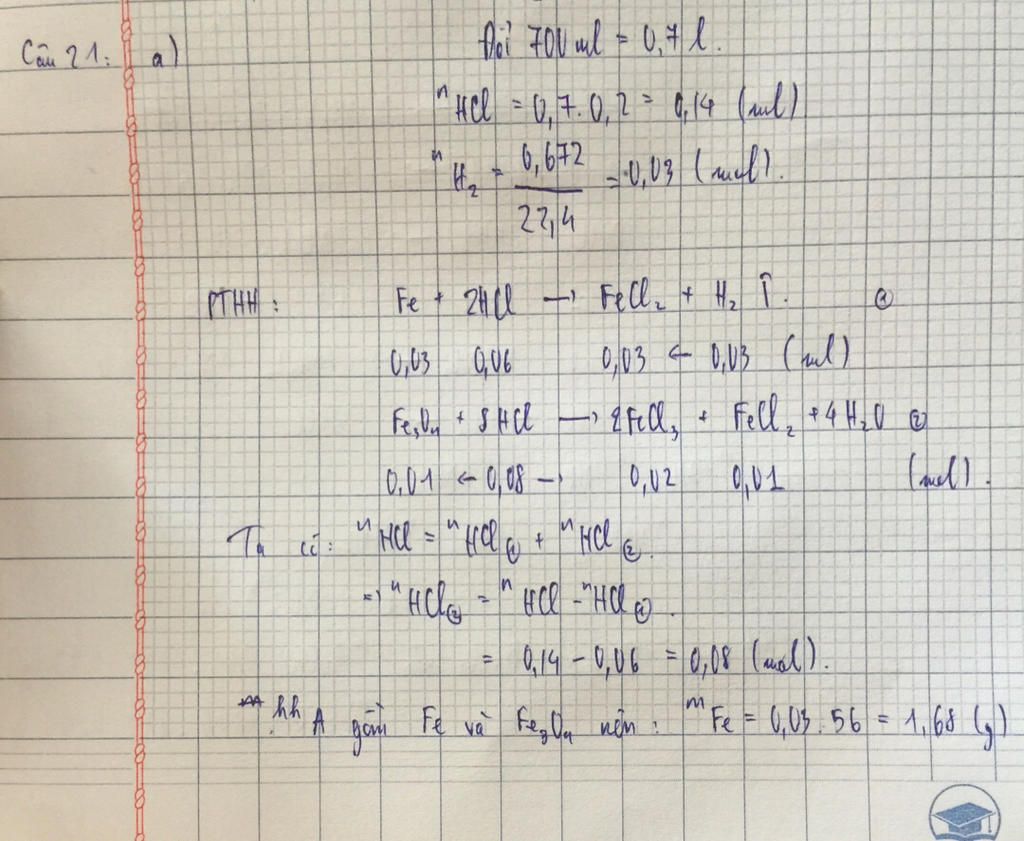 Câu 21: a) Đổi 700 ml = 0,7 l.
nHCl = 0,7. 0,2 = 0,14 (mol)
nH₂ = 0,672/22,4 = 0,03 (mol).
PTHH: Fe + 2HCl → FeCl₂ + H₂ ↑. ①
0,03 0,06 0,03 ← 0,03 (mol)
Fe₃O₄ + 8HCl → 2FeCl₃ + FeCl₂ + 4H₂O ②
0,01 ← 0,08 → 0,02 0,01 (mol).
Ta có: nHCl = nHCl① + nHCl②.
⇒ nHCl② = nHCl - nHCl①.
= 0,14 - 0,06 = 0,08 (mol).
hh A gồm Fe và Fe₃O₄ nên: mFe = 0,03. 56 = 1,68 (g)